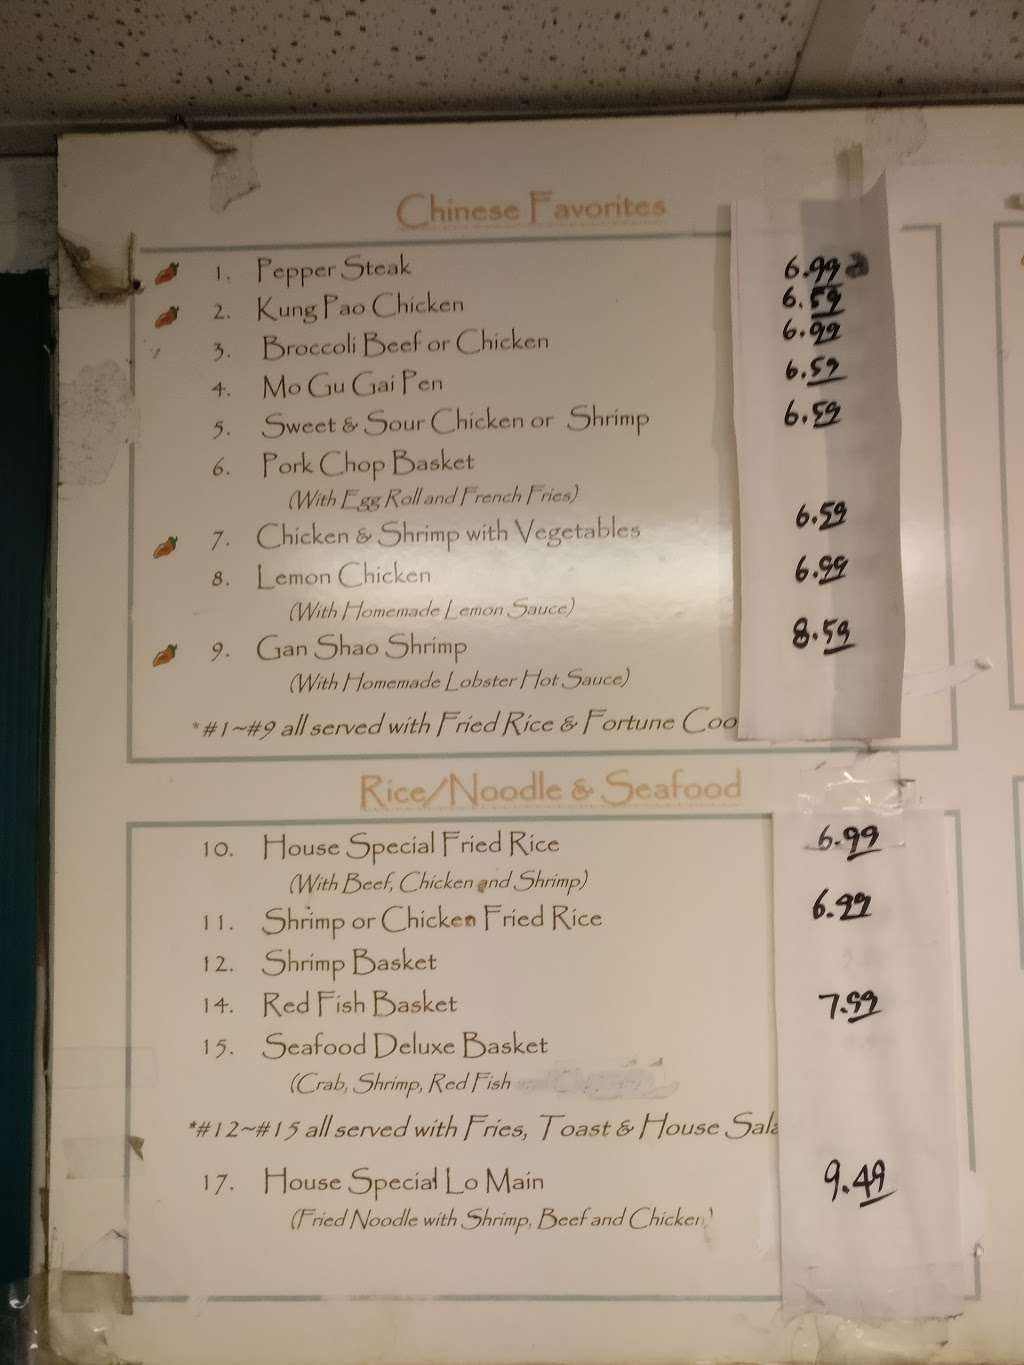 Chinese Favorites
1. Pepper Steak 6.99
2. Kung Pao Chicken 6.59
3. Broccoli Beef or Chicken 6.99
4. Mo Gu Gai Pen 6.59
5. Sweet & Sour Chicken or Shrimp 6.59
6. Pork Chop Basket
(With Egg Roll and French Fries)
7. Chicken & Shrimp with Vegetables 6.59
8. Lemon Chicken 6.99
(With Homemade Lemon Sauce)
9. Gan Shao Shrimp 8.59
(With Homemade Lobster Hot Sauce)
*#1~#9 all served with Fried Rice & Fortune Coo
Rice/Noodle & Seafood
10. House Special Fried Rice 6.99
(With Beef, Chicken and Shrimp)
11. Shrimp or Chicken Fried Rice 6.99
12. Shrimp Basket
14. Red Fish Basket 7.99
15. Seafood Deluxe Basket
(Crab, Shrimp, Red Fish
*#12~#15 all served with Fries, Toast & House Sala
17. House Special Lo Main 9.49
(Fried Noodle with Shrimp, Beef and Chicken)